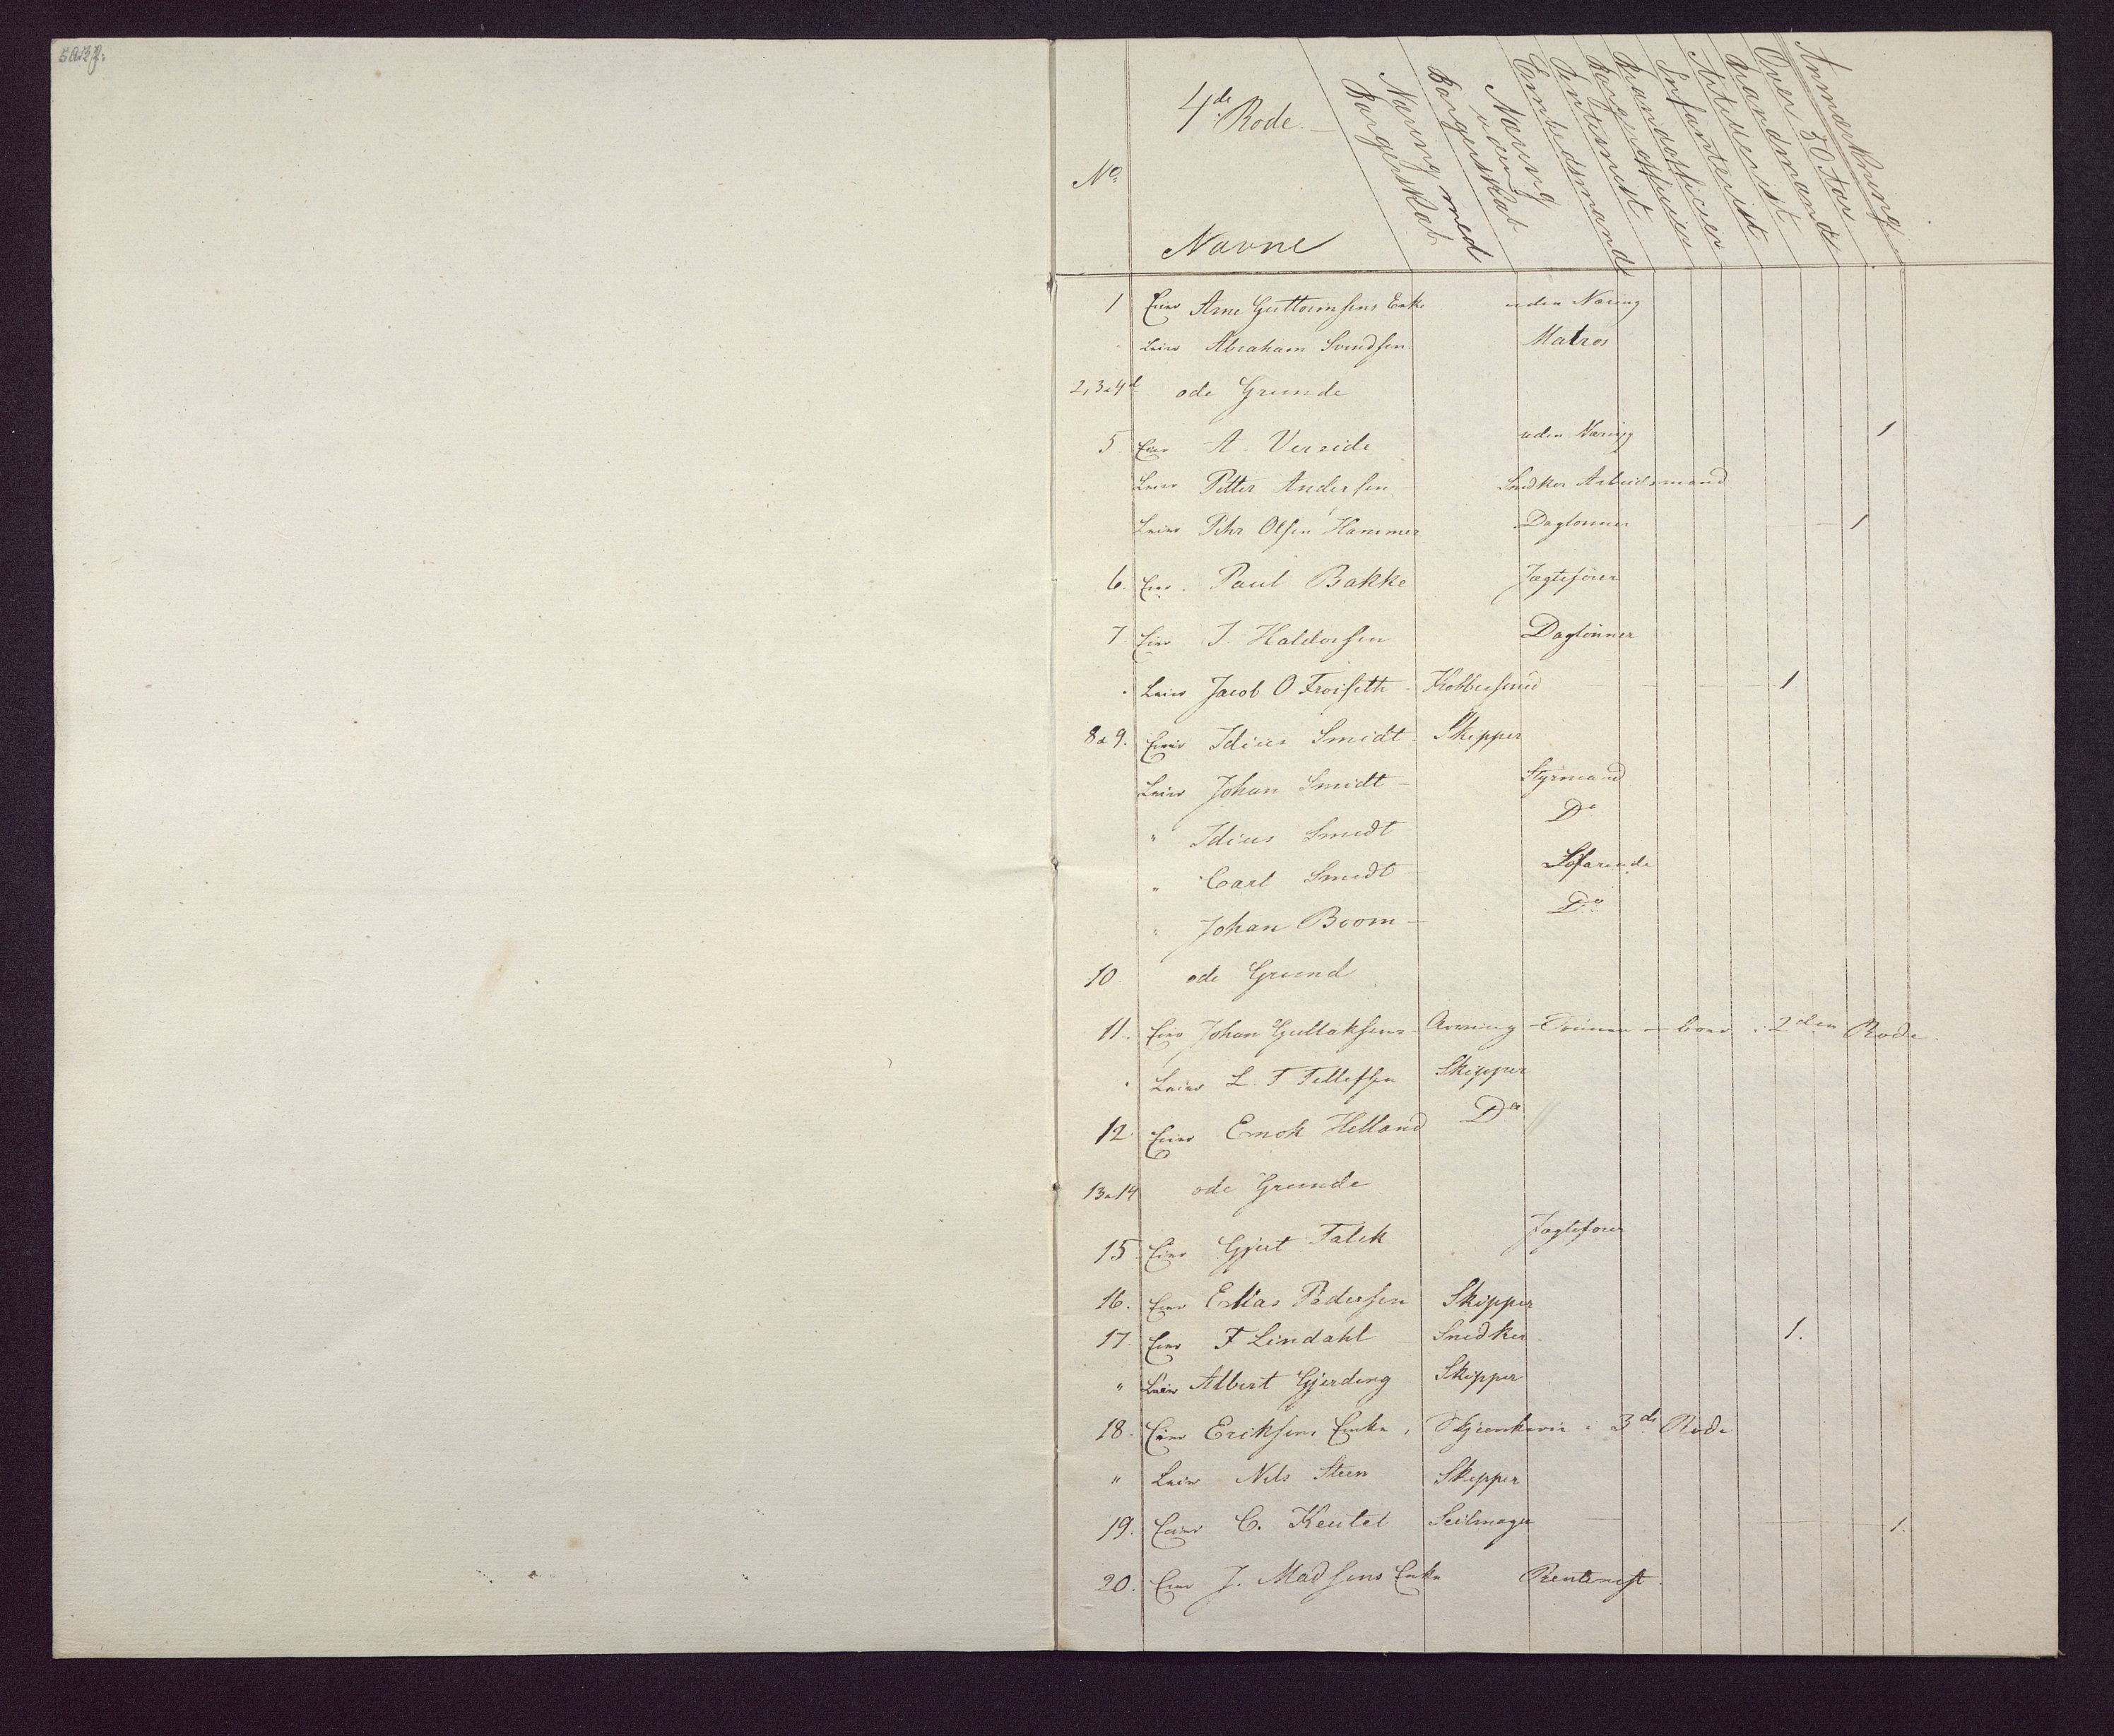 4de Rode
No.
Navne
Næring med Borgerskab
Næring uden Borgerskab
Embedsmand
Rentenist
Borgerofficier
Underofficier
Infanterist
Artillerist
Brandmand
Over 50 Aar
Anmærkning
1 Eier Arne Guttormsens Enke uden Næring
Leier Abraham Svendsen Matros
2, 3 & 4de øde Grunde
5 Eier A. Verside uden Næring 1
Leier Petter Andersen Snedker Arbeidsmand
Leier Pehr Olsen Hammer Daglønner 1
6. Eier Paul Bakke Jagtefører
7 Eier J. Haldorsen Daglønner
Leier Jacob O Froiseth Kobbersmed 1
8 & 9. Eier Idius Smidt Skipper
Leier Johan Smidt Styrmand
" Idius Smidt Do
" Carl Smidt Søfarende
" Johan Boom Do
10 øde Grund
11. Eier Johan Gullaksens boer i 2den Rode.
Leier L. T Tellefsen Skipper
12 Eier Enok Helland Do
13 & 14 øde Grunde
15 Eier Gjert Falck Jagtefører
16. Eier Elias Pedersen Skipper
17 Eier F Lindahl Snedker. 1.
" Leier Albert Gjerding Skipper
18. Eier Eriksens Enke, i 3de Rode
" Leier Nils Steen Skipper
19. Eier C. Keutel Seilmager 1.
20. Eier J. Madsens Enke Rentenist.